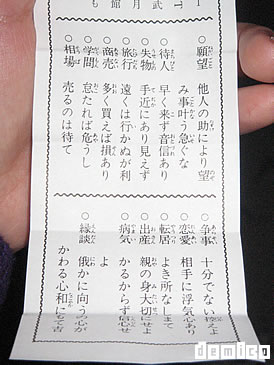 ○願望 他人の助により望
み事叶う急ぐな
○待人 早く来ず音信あり
○失物 手近にあり見えず
○旅行 遠くは行かぬが利
○商売 多く買えば損あり
○学問 怠たれば危うし
○相場 売るのは待て
○争事 十分でない控えよ
○恋愛 相手に浮気心あり
○転居 よき所なしまて
○出産 親の身大切にせよ
○病気 かるからず信心せ
よ
○縁談 俄かに向う心が
かわる心和にもて吉
demica